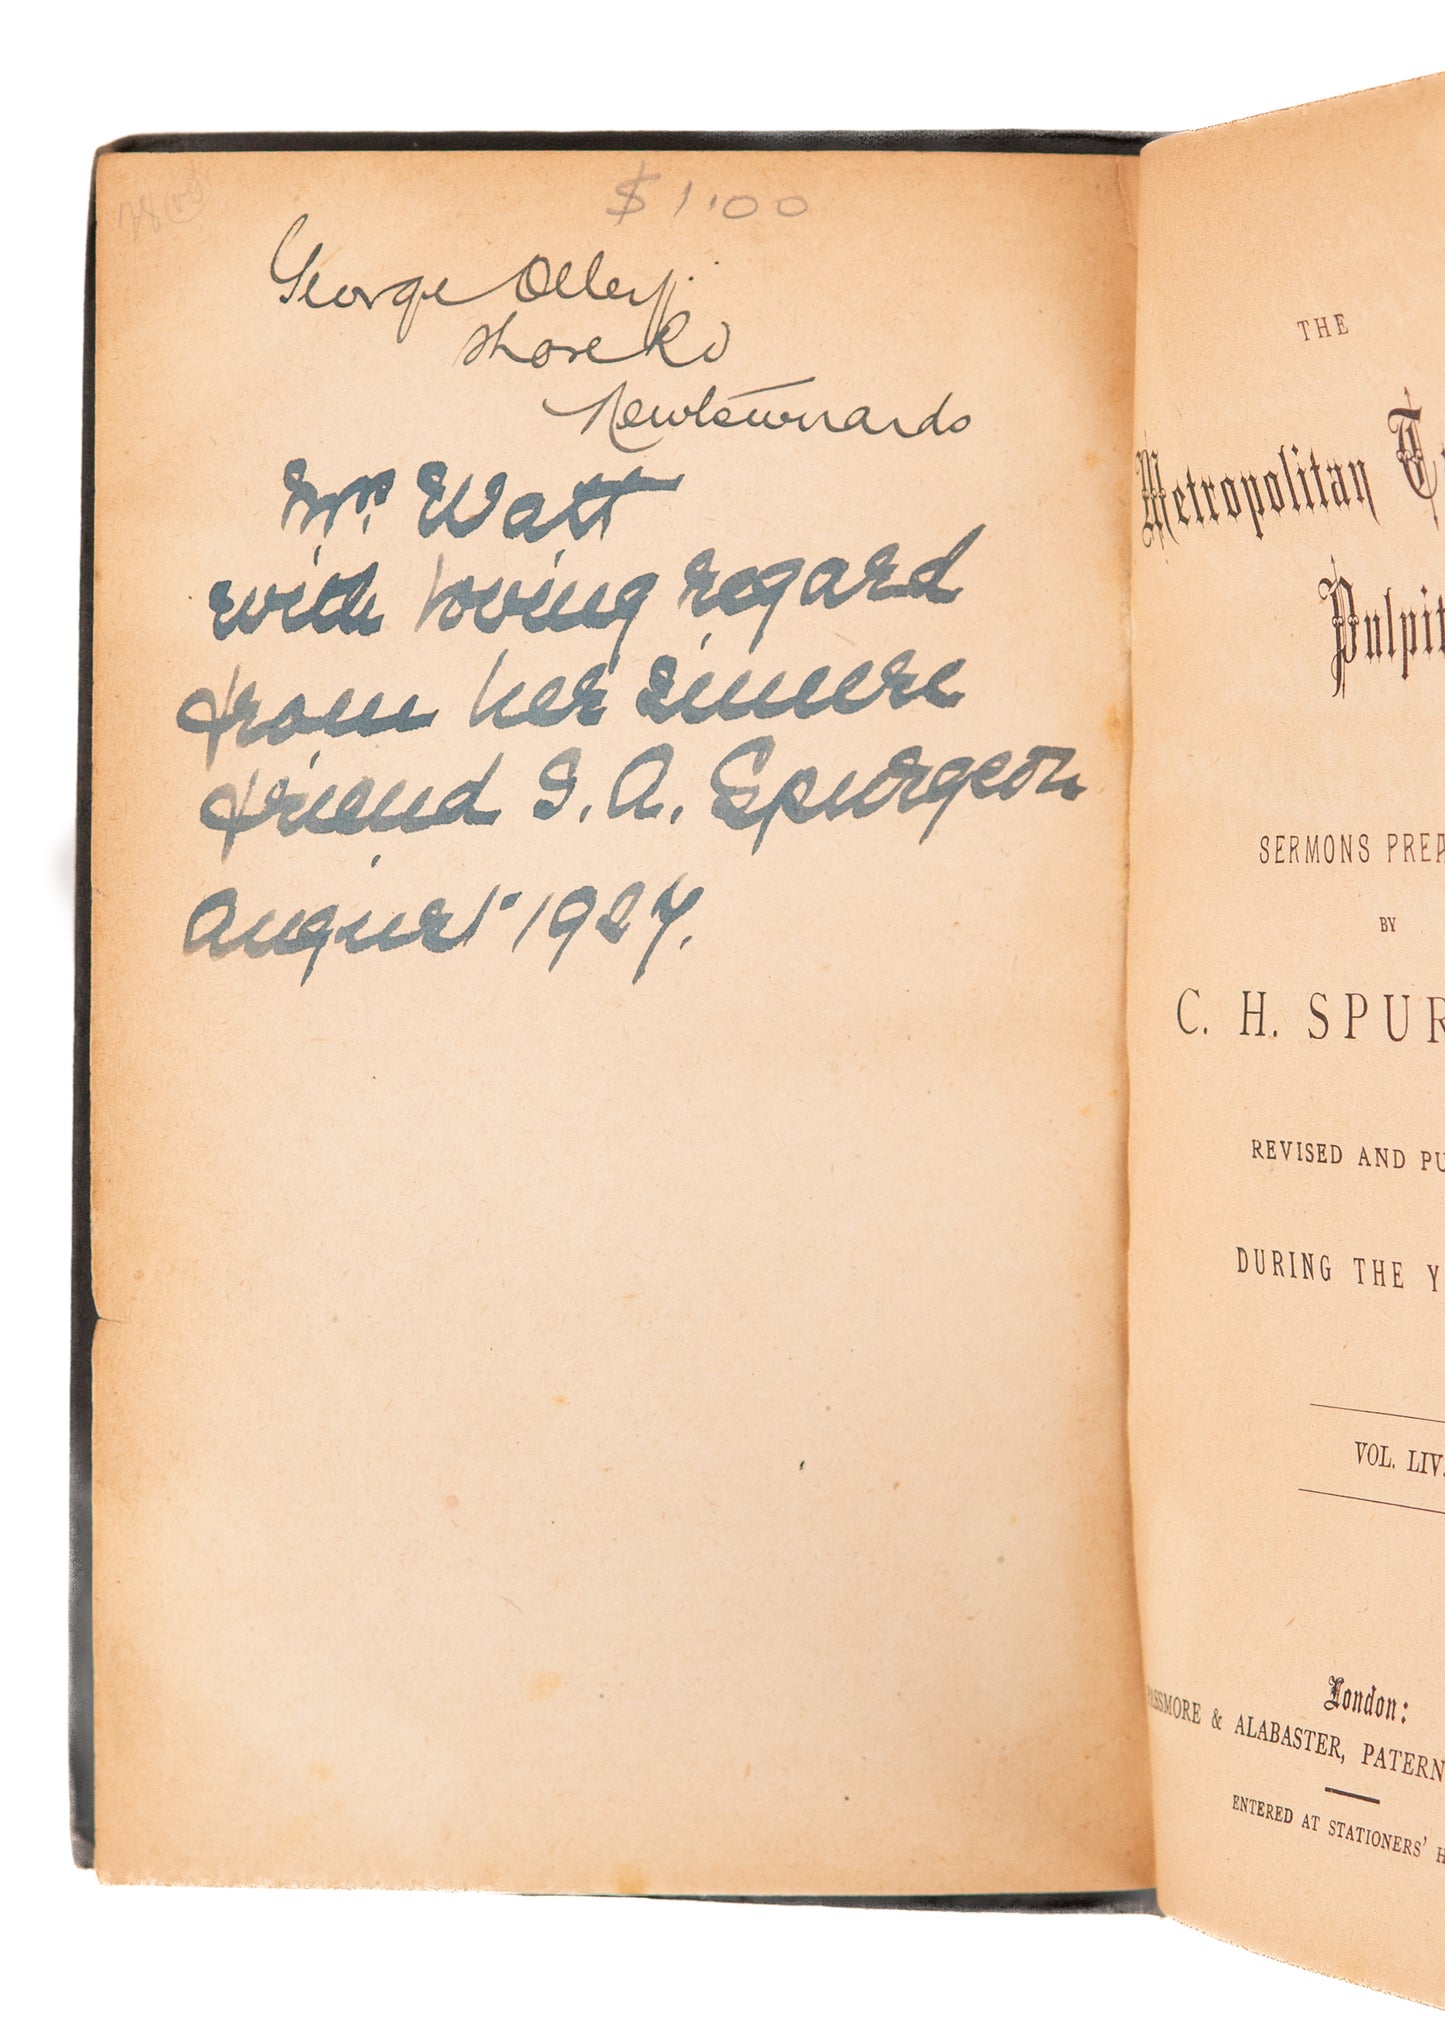 $1.00
George
Shore Rd
Newtownards
Mrs. Watt
with loving regard
from her sincere
friend S. A. Spurgeon
August 1927.
THE
Metropolitan T
Pulpit
SERMONS PREA
BY
C. H. SPUR
REVISED AND PU
DURING THE Y
VOL. LIV.
London:
PASSMORE & ALABASTER, PATERN
ENTERED AT STATIONERS' H